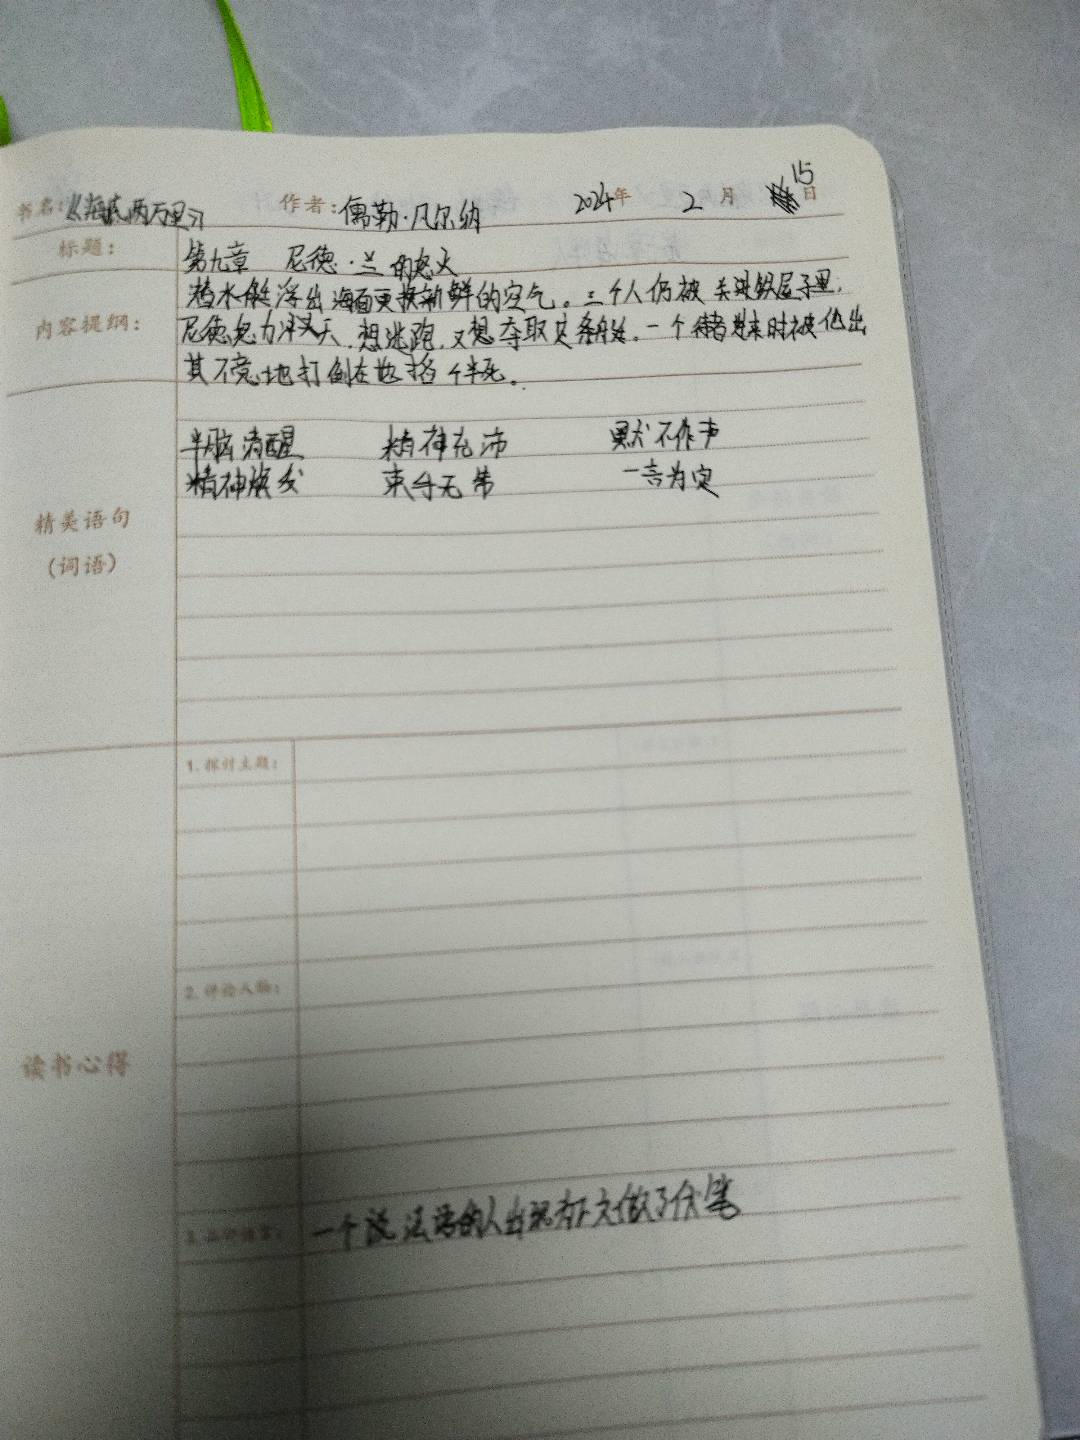 书名:《海底两万里》 作者:儒勒·凡尔纳 2024年 2月 15日
标题: 第九章 尼德·兰的怒火
潜水艇浮出海面更换新鲜的空气。三个人仍被关进铁屋子里,
内容提纲: 尼德怒力冲天,想逃跑,又想夺取这条船。一个侍者进来时被他出
其不意地打倒在地掐个半死。
半脑清醒 精神充沛 默不作声
精神焕发 束手无策 一言为定
精美语句
(词语)
1.探讨主题:
2.评论人物:
读书心得
3.品评语言: 一个说法语的人出现为下文做了伏笔